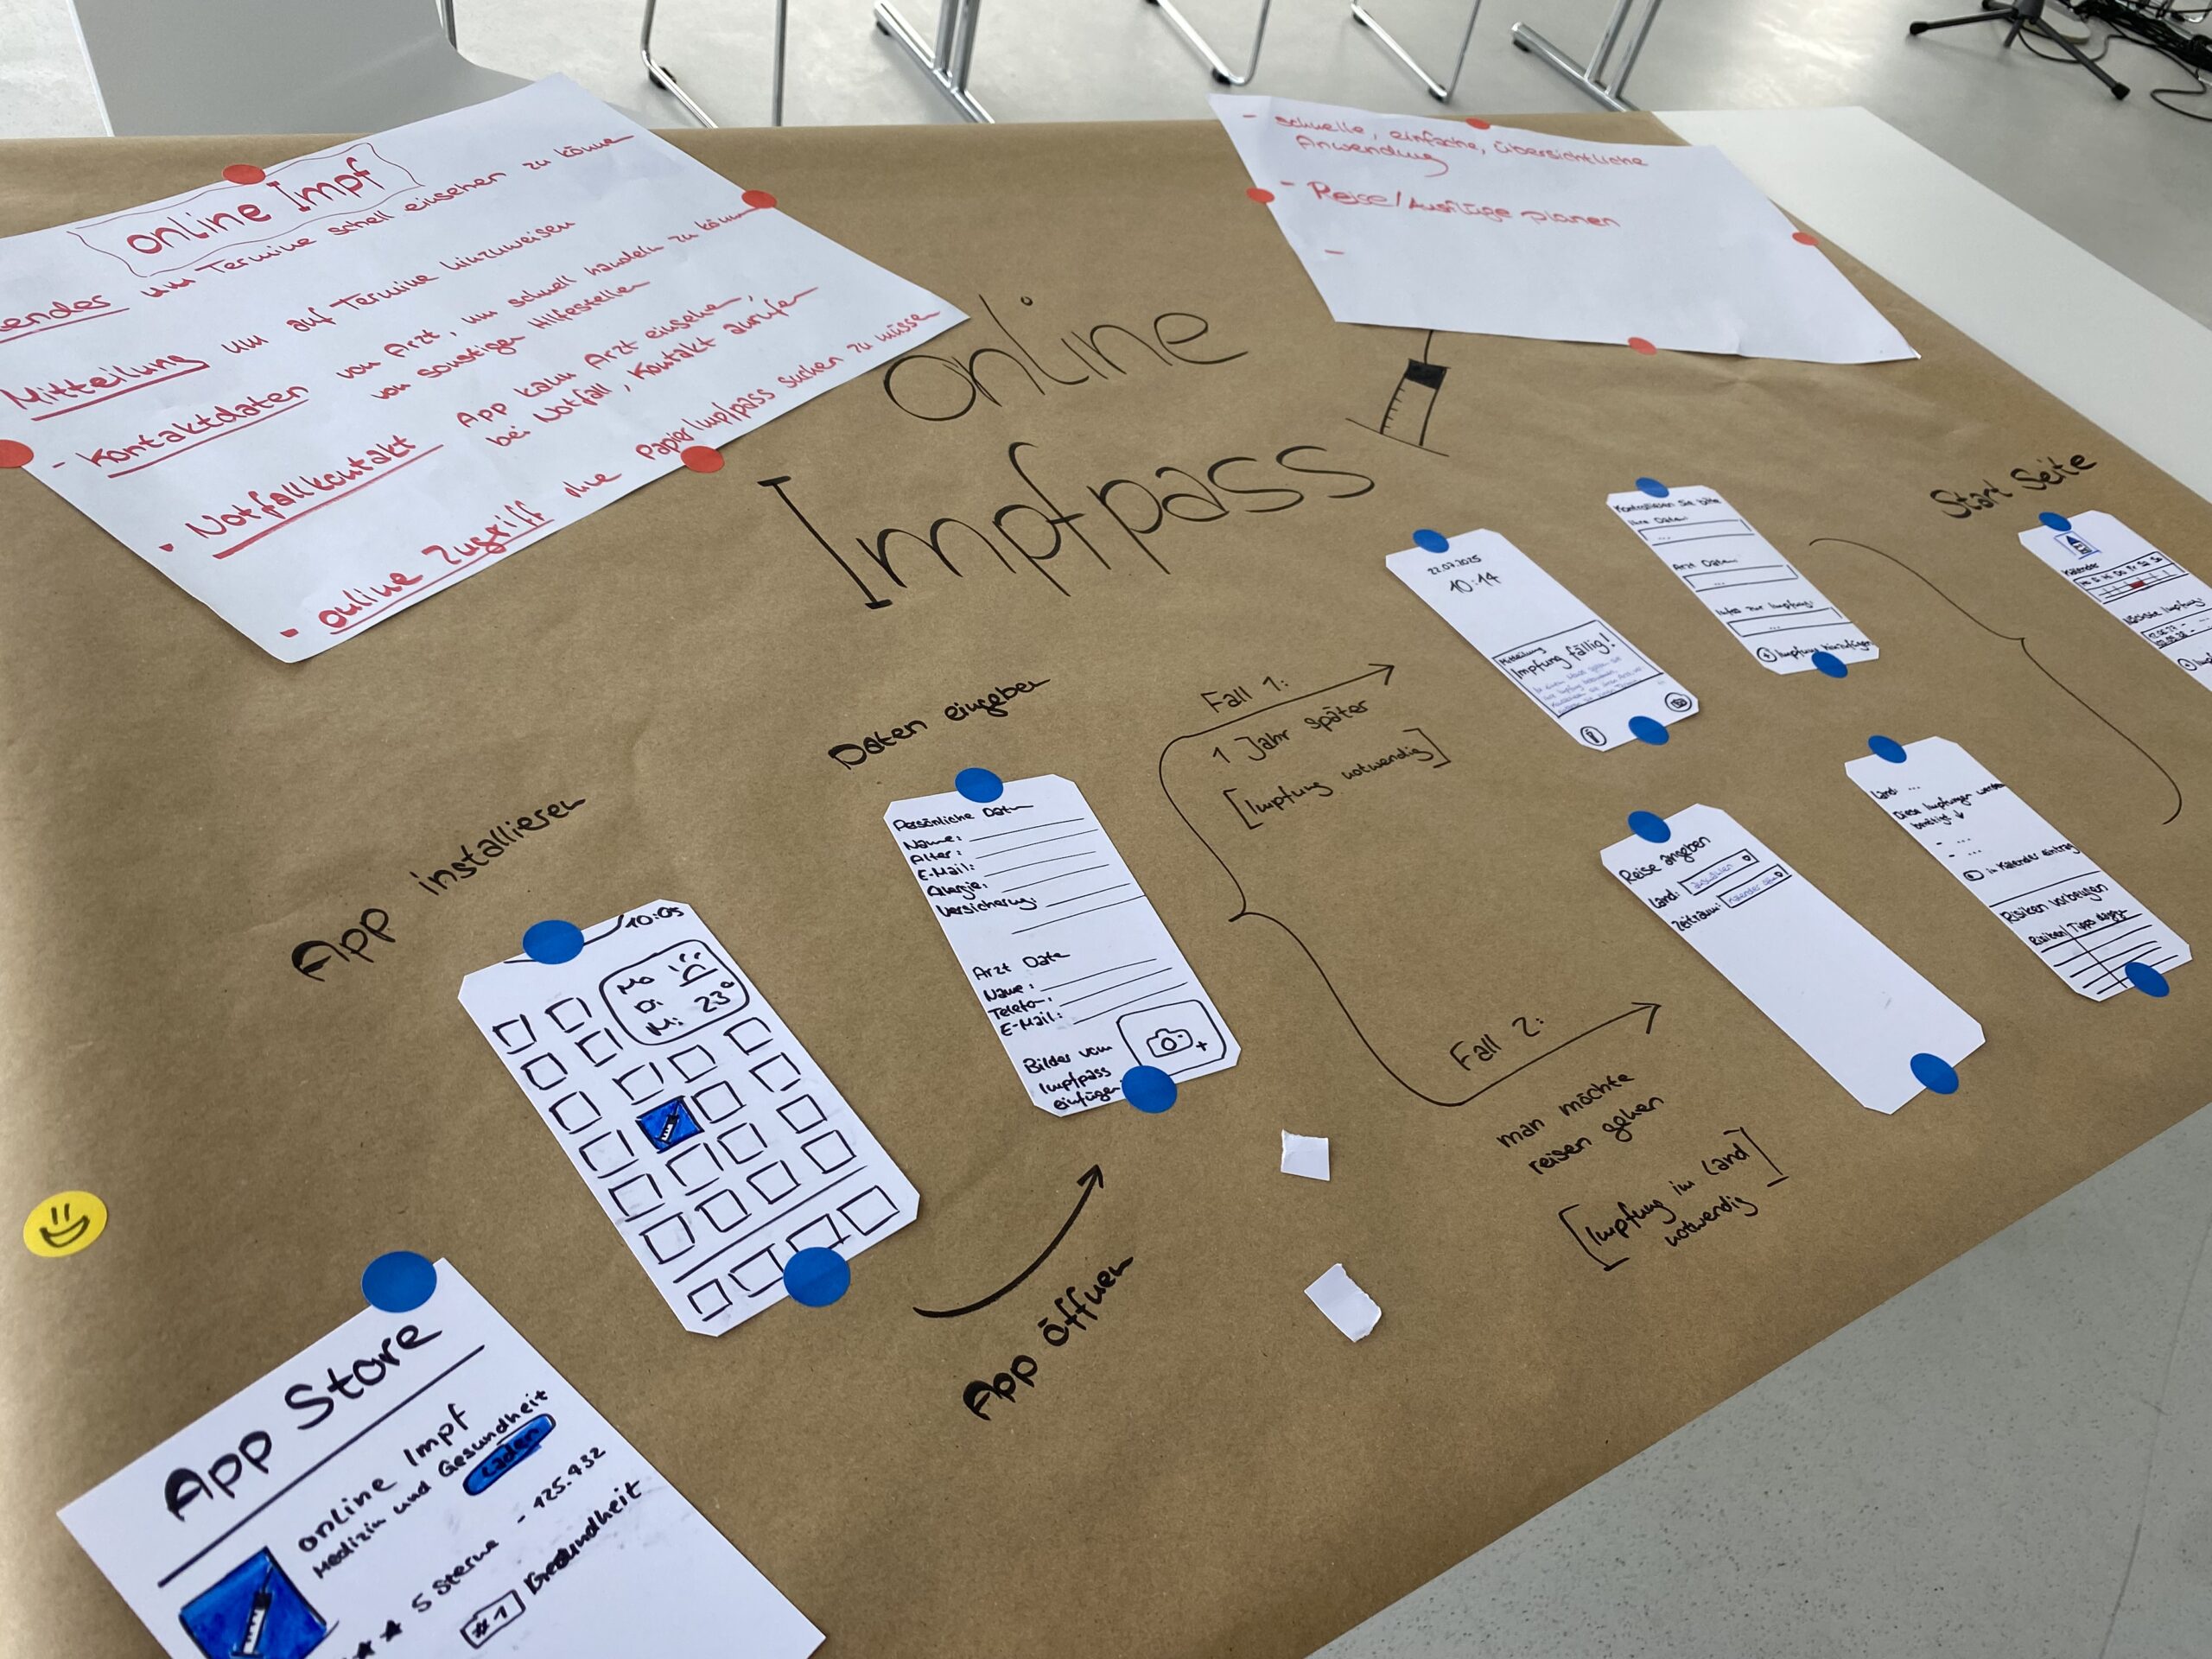 online Impf
um Termine schell einsehen zu können
Mitteilung um auf Termine hinzuweisen
- Kontaktdaten von Arzt, um schnell handeln zu könn
von sonstigen Hilfestellen
• Notfallkontakt App kann Arzt einsehen,
bei Notfall, Kontakt anrufen
• online Zugriff ohne Papierimpfpass suchen zu müssen
- schnelle, einfache, übersichtliche
Anwendung
- Reise/Ausflüge planen
-
online
Impfpass
App Store
online Impf
Medizin und Gesundheit
Laden
5 Sterne - 125.432
#1 Gesundheit
App installieren
10:05
Mo
Di
Mi 23°
App öffnen
Daten eingeben
Persönliche Daten
Name:
Alter:
E-Mail:
Allergie:
Versicherung:
Arzt Date
Name:
Telefon:
E-Mail:
Bilder vom
Impfpass
einfügen
Fall 1:
1 Jahr später
[Impfung notwendig]
22.07.2025
10:14
Mitteilung
Impfung fällig!
Kontrollieren Sie bitte
Ihre Daten:
...
Arzt Daten:
...
Infos zur Impfung:
...
+ Impfung hinzufügen
Fall 2:
man möchte
reisen gehen
[Impfung im Land
notwendig]
Reise angeben
Land: auswählen
Zeitraum:
Land: ...
Diese Impfungen werden
benötigt ↓
- ...
- ...
in Kalender eintrag
Risiken vorbeugen
Risiken Tipps
Start Seite
Kalender
Mo Di Mi Do Fr Sa So
Nächste Impfung: